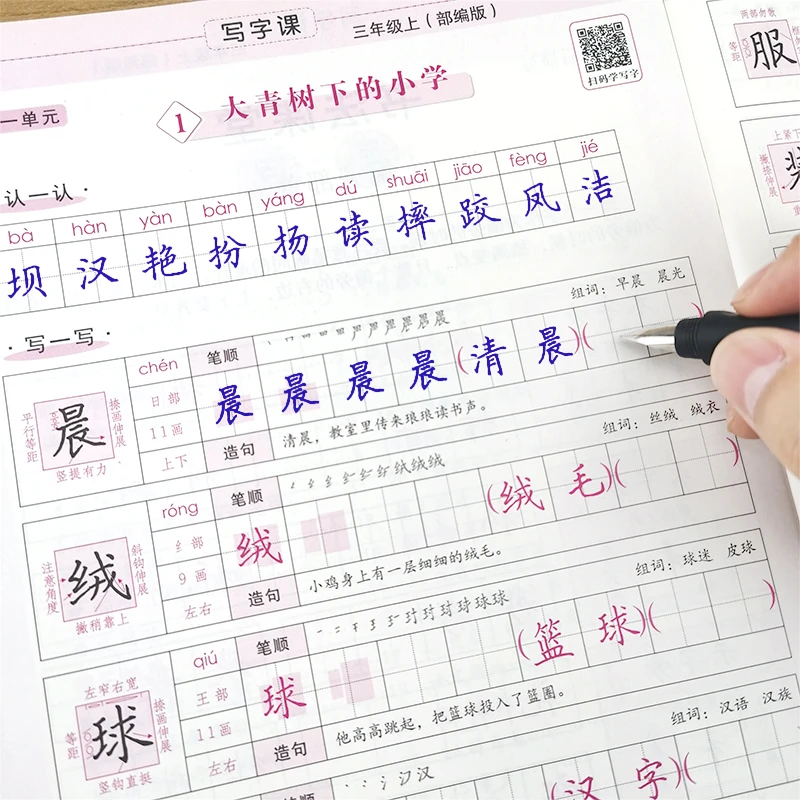 写字课
三年级上（部编版）
扫码学写字
一单元
1 大青树下的小学
认一认·
bà hàn yàn bàn yáng dú shuāi jiāo fèng jié
坝 汉 艳 扮 扬 读 摔 跤 凤 洁
·写一写·
组词：早晨 晨光
平行等距
晨
捺画伸展
竖提有力
chén
日部
11画
上下
笔顺
晨 晨 晨 晨 （清晨）（ ）
造句
清晨，教室里传来琅琅读书声。
组词：丝绒 绒衣
注意角度
绒
斜钩伸展
撇稍靠上
róng
纟部
9画
左右
笔顺
绒 （绒毛）（ ）
造句
小鸡身上有一层细细的绒毛。
组词：球迷 皮球
左窄右宽
等距
球
捺画伸展
竖钩直挺
qiú
王部
11画
左右
笔顺
球 （篮球）（ ）
造句
他高高跳起，把篮球投入了篮圈。
组词：汉语 汉族
笔顺
（汉字）（
两部匀散
等距
服
上紧下